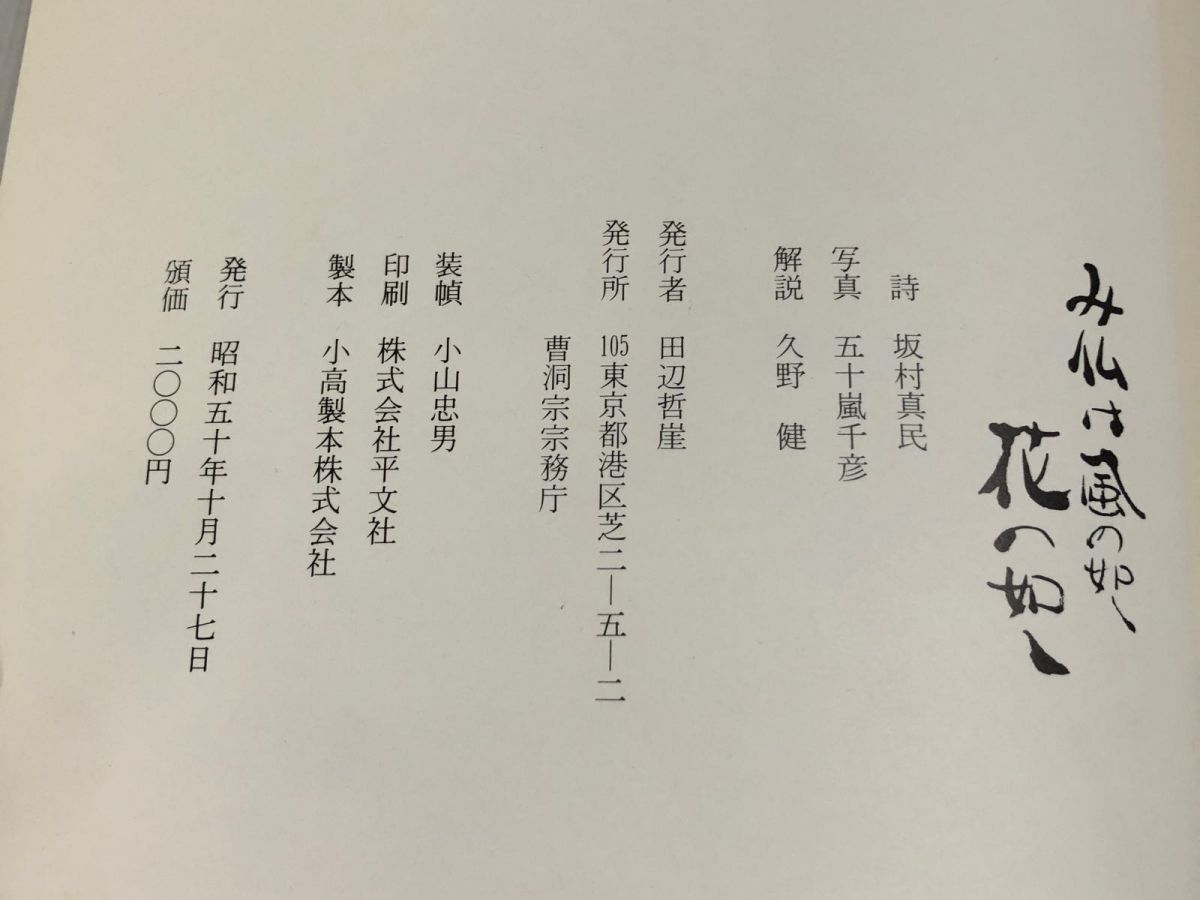 み仏は風の如く
花の如し
詩 坂村真民
写真 五十嵐千彦
解説 久野 健
発行者 田辺哲崖
発行所 105東京都港区芝二―五―二
曹洞宗宗務庁
装幀 小山忠男
印刷 株式会社平文社
製本 小高製本株式会社
発行 昭和五十年十月二十七日
頒価 二〇〇〇円